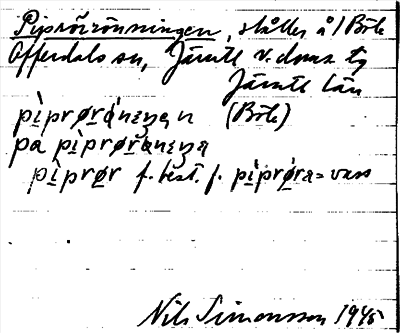 Piprörönningen, slåtter å/Böle
Offerdals sn, Jämtl v. doms tg
Jämtl län
pìprøránıŋȩn (Böle)
pa pìprøránıŋa
pìprør f. best. f. pìprǿra = vass
Nils Simonsson 1945